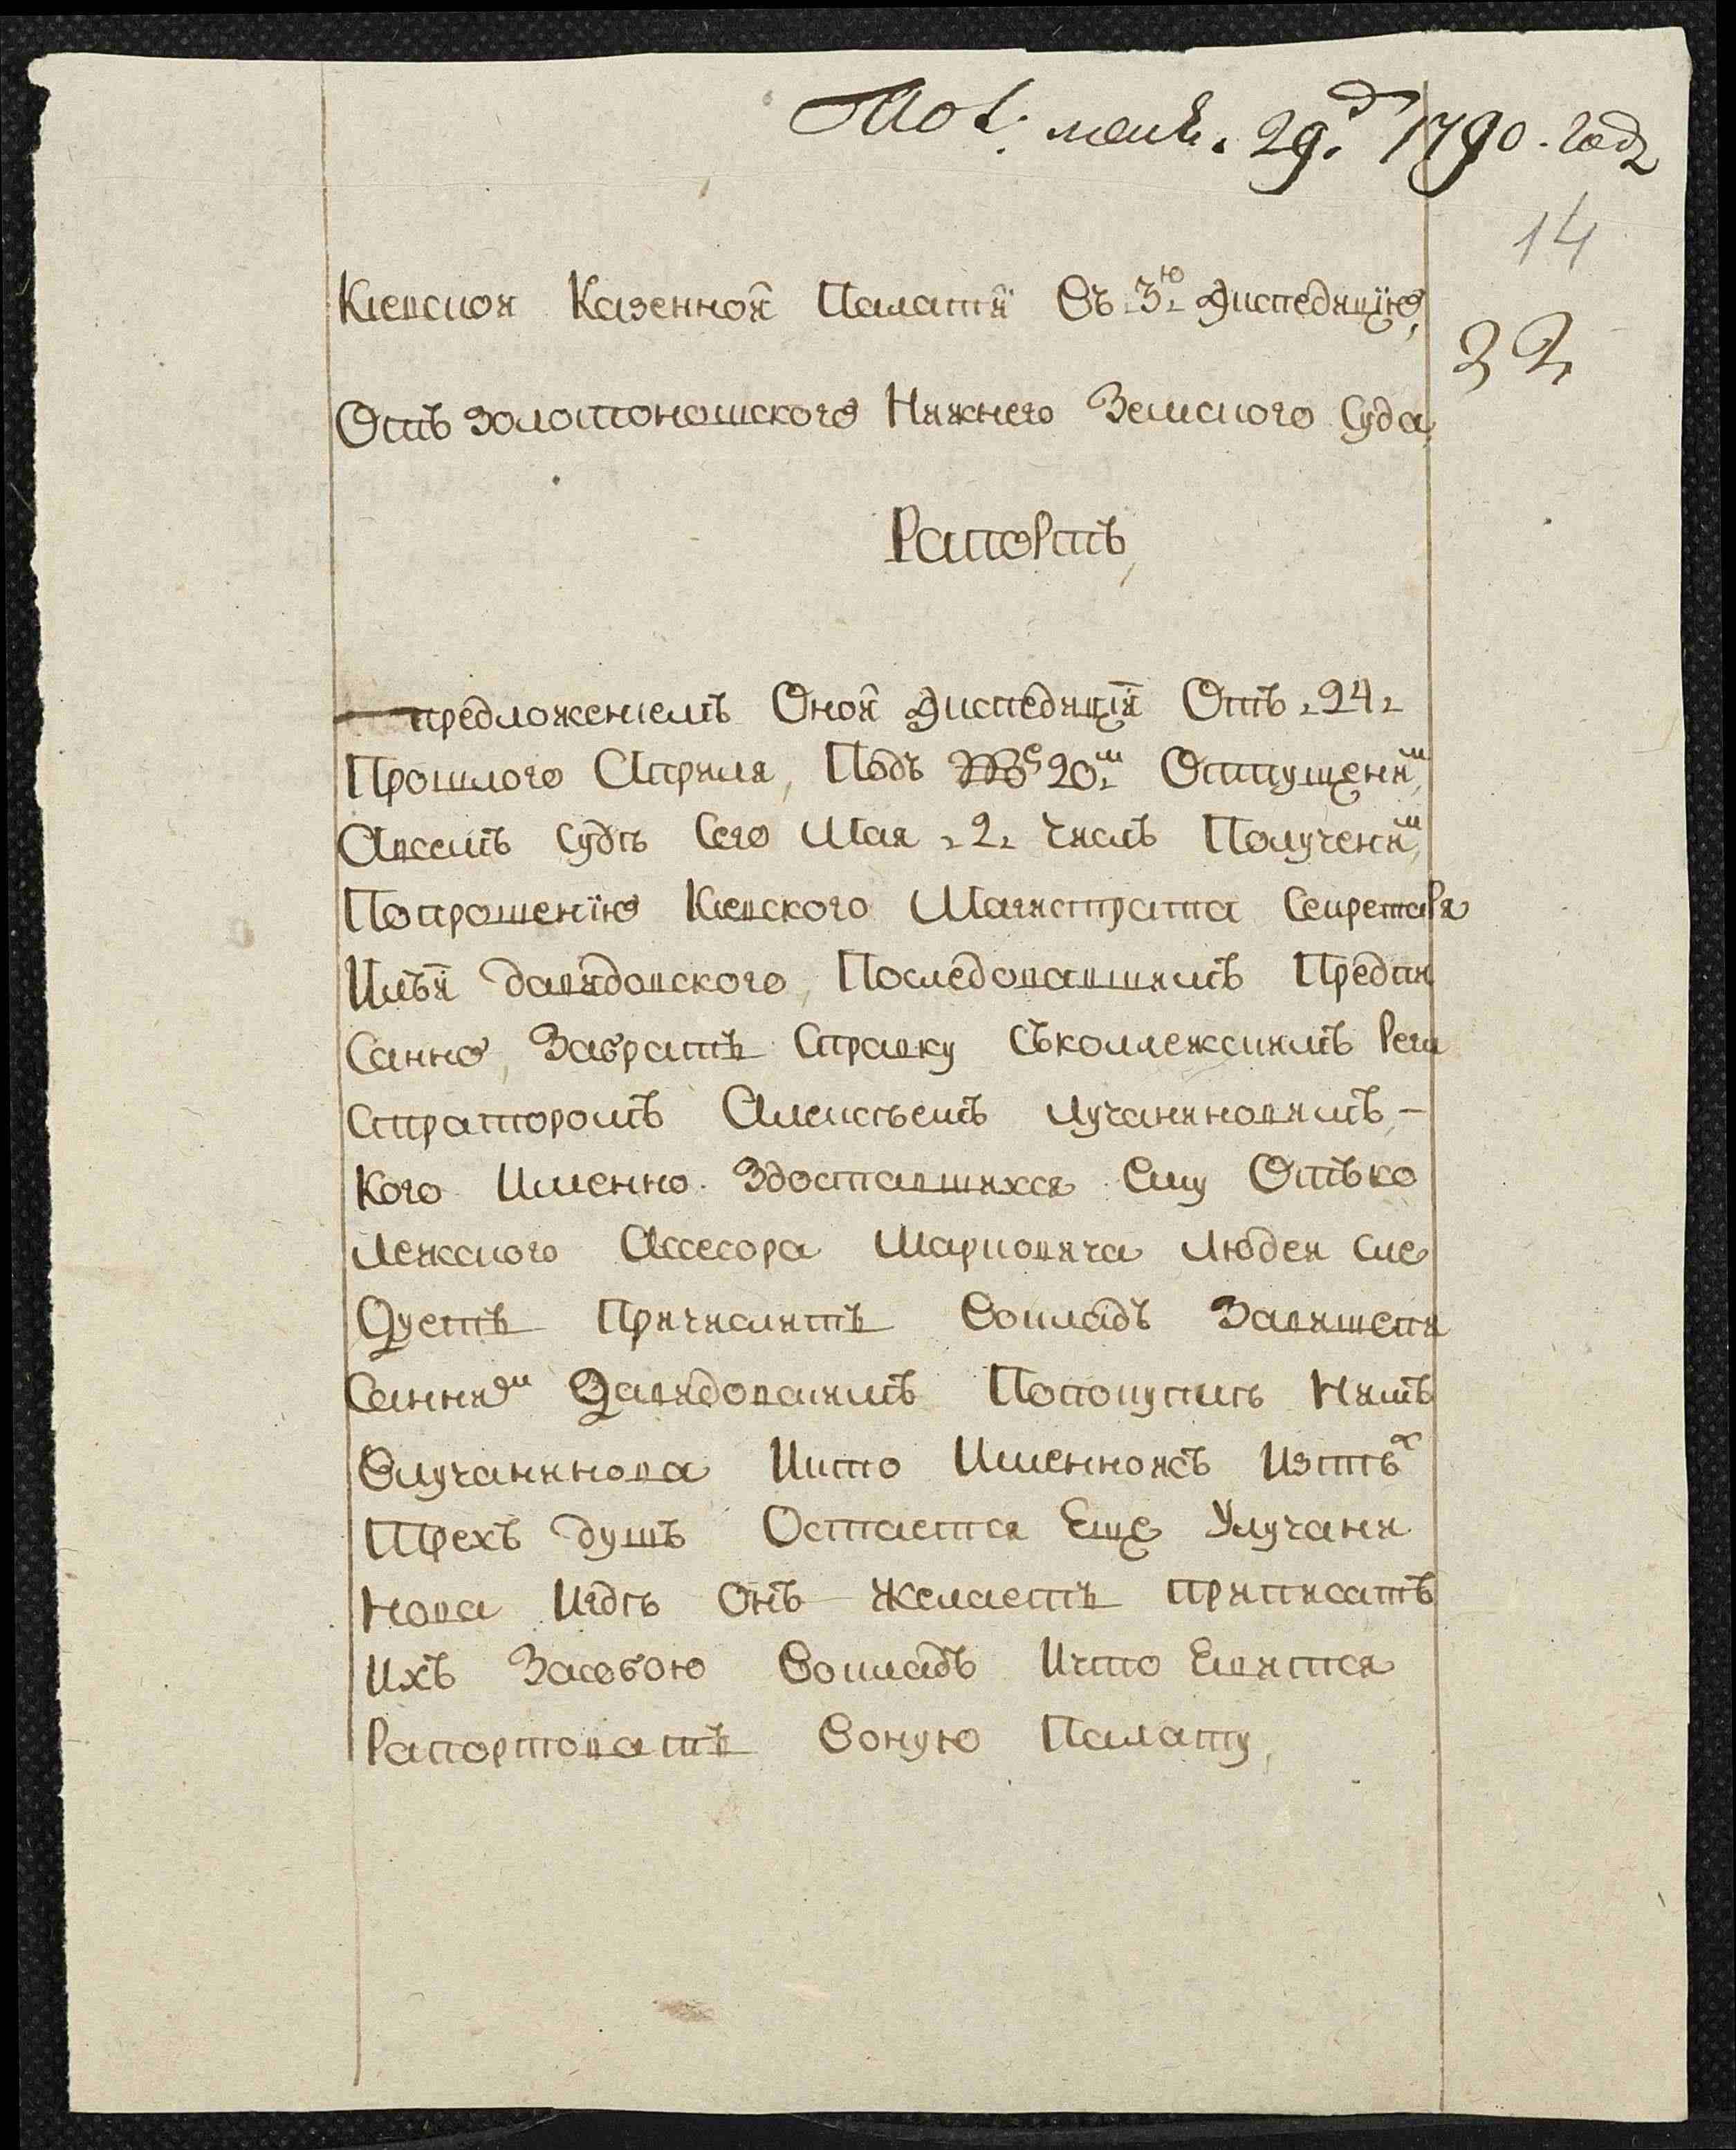 маія. 29.д 1790. года
14
Киевской Казенной Палаты въ 3ю Экспедицию,
32
Отъ золотоношского Нижнего Земского Суда,
Рапортъ,
предложениемъ Оной Экспедиции Отъ 24
Прошлого Априля, Подъ № 20м Отпущеним,
Авсемъ Судѣ Сего Мая 2 Числъ Полученим,
Попрошению Киевского Магистрата Секретаря
Ильи давидовского, Последовавшимъ Предпи
Санно, Забрать Справку Съколлежскимъ Реги
стратором Алексѣемъ лучаниновимъ, -
Кого Именно Здоставшихся Ему Отъко
лежского Ассесора Марковича людей Сле
дуеть Причислить Вокладъ Завишепи
Санним Давидовскимъ Покопукпъ Нимъ
Влучанинова Икто Именножъ Изтѣх
Трехъ душъ Остается Еще Улучани
нова Игдѣ Онъ Желаеть приписать
Ихъ Засобою Вокладъ Ичто Евится
Рапортовать Воную Палату,